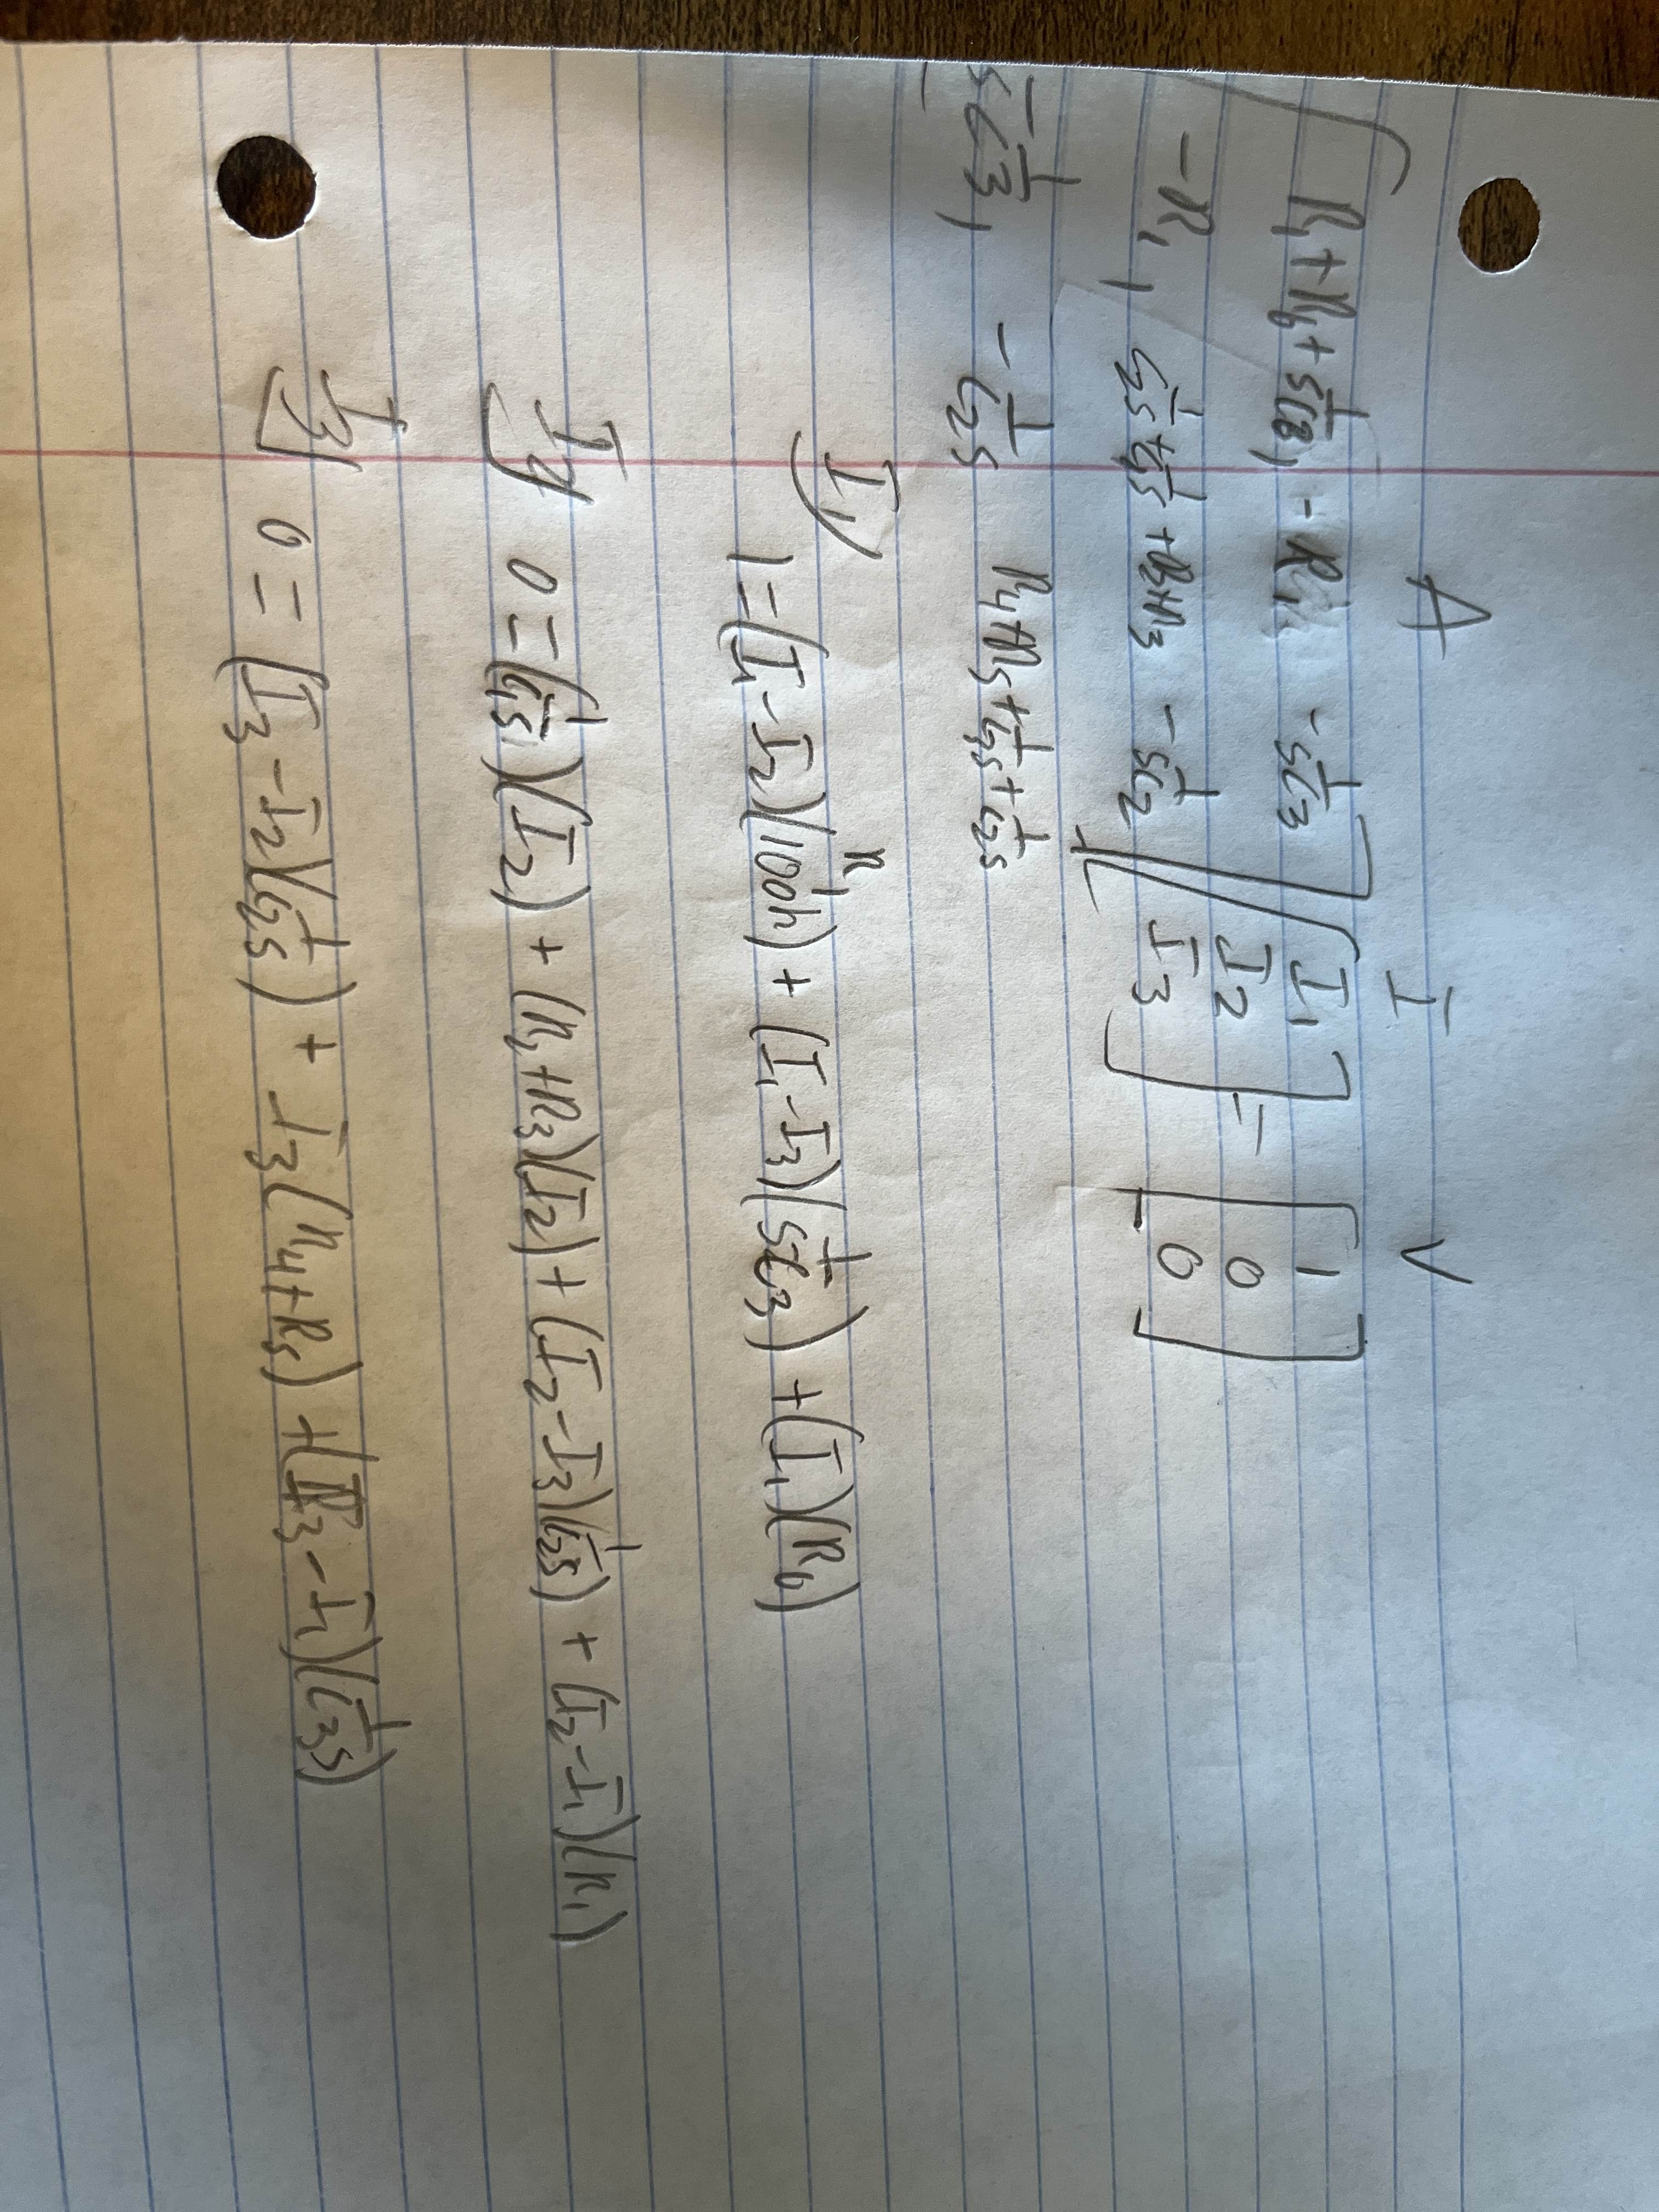 A I V
[ R1+R6+1/SC3, -R1, -1/SC3 ] [ I1 ] = [ 1 ]
-R1, 1/C2S + 1/C1S + R2+R3 -1/SC2 I2 0
-1/SC3, -1/C2S R4+R5+1/C3S+1/C2S I3 0
I1)
R1
1=(I1-I2)(100k) + (I1-I3)(1/SC3) + (I1)(R6)
I2)
0=(1/C1S)(I2) + (R2+R3)(I2) + (I2-I3)(1/C2S) + (I2-I1)(R1)
I3)
0=(I3-I2)(1/C2S) + I3(R4+R5) + (I3-I1)(1/C3S)